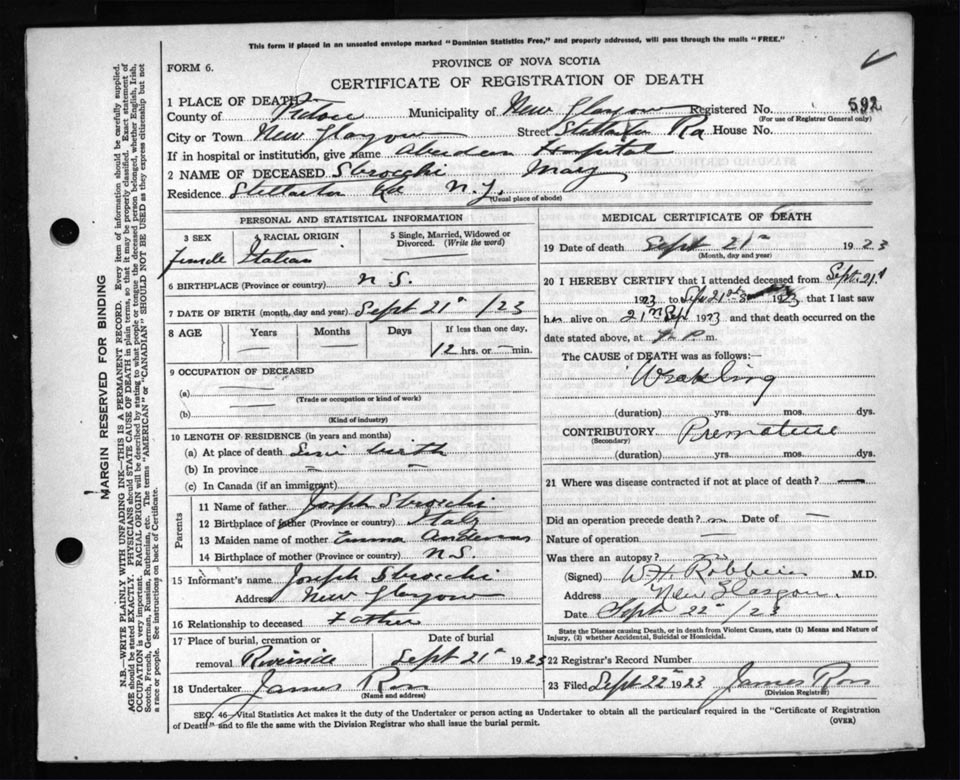 This form if placed in an unsealed envelope marked "Dominion Statistics Free," and properly addressed, will pass through the mails "FREE."
FORM 6.
PROVINCE OF NOVA SCOTIA
CERTIFICATE OF REGISTRATION OF DEATH
1 PLACE OF DEATH—
County of Pictou Municipality of New Glasgow Registered No. 592
(For use of Registrar General only)
City or Town New Glasgow Street Stellarton Rd House No.
If in hospital or institution, give name Aberdeen Hospital
2 NAME OF DECEASED Strocchi Mary
Residence Stellarton Rd N.G.
(Usual place of abode)
PERSONAL AND STATISTICAL INFORMATION
3 SEX 4 RACIAL ORIGIN 5 Single, Married, Widowed or Divorced. (Write the word)
Female Italian
6 BIRTHPLACE (Province or country) N S.
7 DATE OF BIRTH (month, day and year) Sept 21st /23
8 AGE Years Months Days If less than one day,
— — 12 hrs. or — min.
9 OCCUPATION OF DECEASED
(a)
(Trade or occupation or kind of work)
(b)
(Kind of industry)
10 LENGTH OF RESIDENCE (in years and months)
(a) At place of death Since birth
(b) In province — —
(c) In Canada (if an immigrant)
Parents
11 Name of father Joseph Strocchi
12 Birthplace of father (Province or country) Italy
13 Maiden name of mother Emma
14 Birthplace of mother (Province or country) N.S.
15 Informant's name Joseph Strocchi
Address New Glasgow
16 Relationship to deceased Father
17 Place of burial, cremation or removal Riverside
Date of burial Sept 21st 1923
18 Undertaker James Ross
(Name and address)
MEDICAL CERTIFICATE OF DEATH
19 Date of death Sept 21st 1923
(Month, day and year)
20 I HEREBY CERTIFY that I attended deceased from Sept. 21st
1923 to Sep 21st 1923 that I last saw
her alive on 21st Sept 1923 and that death occurred on the
date stated above, at P. m.
The CAUSE of DEATH was as follows:—
Weakling
(duration) yrs. mos. dys.
CONTRIBUTORY Premature
(Secondary)
(duration) yrs. mos. dys.
21 Where was disease contracted if not at place of death? —
Did an operation precede death? no Date of —
Nature of operation —
Was there an autopsy?
(Signed) W H Robbins M.D.
Address New Glasgow.
Date Sept 22nd /23
State the Disease causing Death, or in death from Violent Causes, state (1) Means and Nature of
Injury, (2) whether Accidental, Suicidal or Homicidal.
22 Registrar's Record Number
23 Filed Sept 22nd 1923 James Ross
(Division Registrar)
SEC. 46—Vital Statistics Act makes it the duty of the Undertaker or person acting as Undertaker to obtain all the particulars required in the "Certificate of Registration
of Death" and to file the same with the Division Registrar who shall issue the burial permit.
(OVER)
MARGIN RESERVED FOR BINDING
N.B.—WRITE PLAINLY WITH UNFADING INK—THIS IS A PERMANENT RECORD. Every item of information should be carefully supplied.
AGE should be stated EXACTLY. PHYSICIANS should STATE CAUSE OF DEATH in plain terms, so that it may be properly classified. Exact statement of
OCCUPATION is very important. RACIAL ORIGIN will be described by stating to what people or tongue the deceased person belonged, whether English, Irish,
Scotch, French, German, Russian, Ruthenian, etc. The terms "AMERICAN" or "CANADIAN" SHOULD NOT BE USED as they express citizenship but not
a race or people. See instructions on back of Certificate.